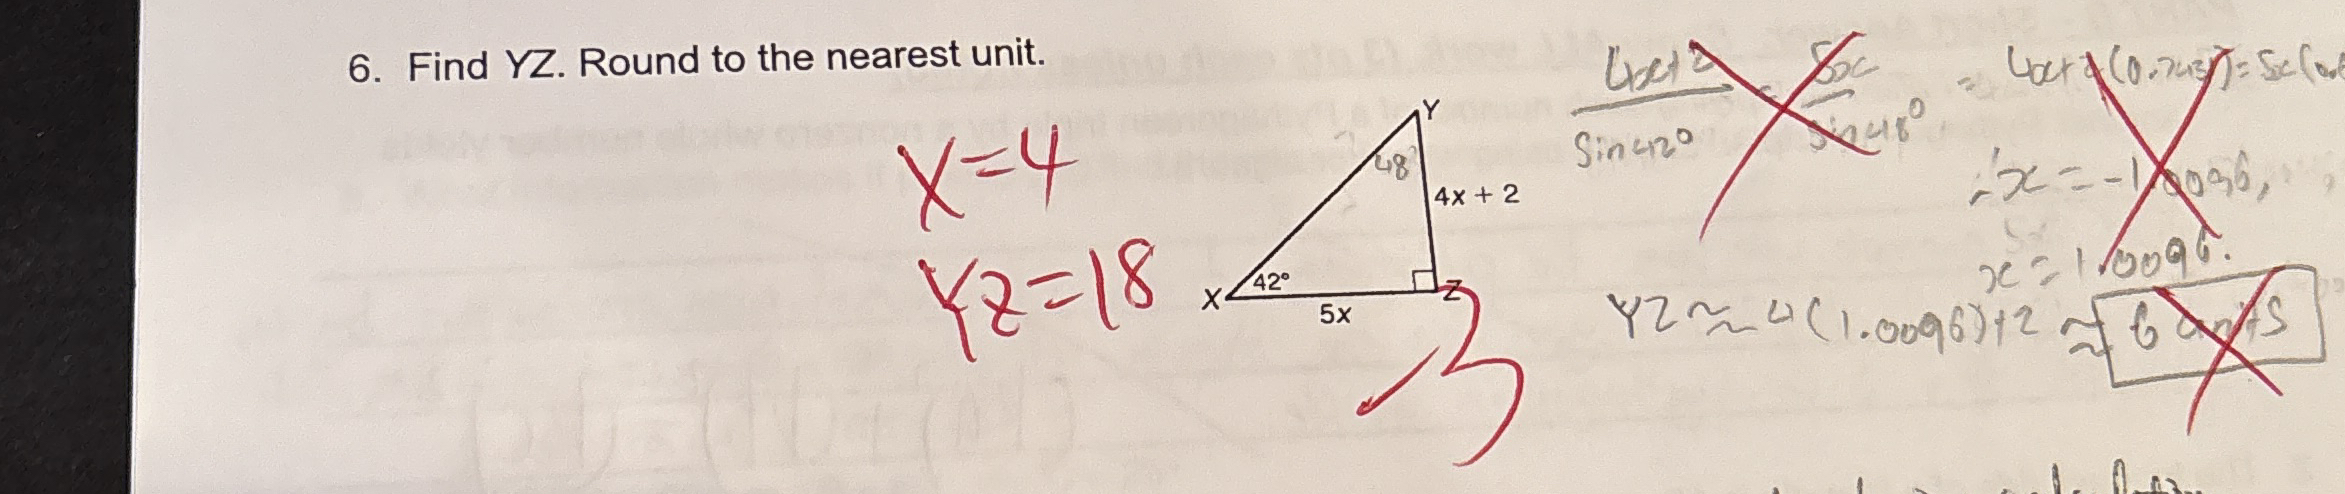 6. Find YZ. Round to the nearest unit.
X=4
YZ=18
Y
48°
4x + 2
42°
X
5x
Z
3
4x+2 / sin42° = 5x / sin48°
= 4x+2(0.7431)=5x(0.6
∴x = -1.0096,
x = 1.0096.
YZ ≈ 4(1.0096)+2 ≈ 6 units